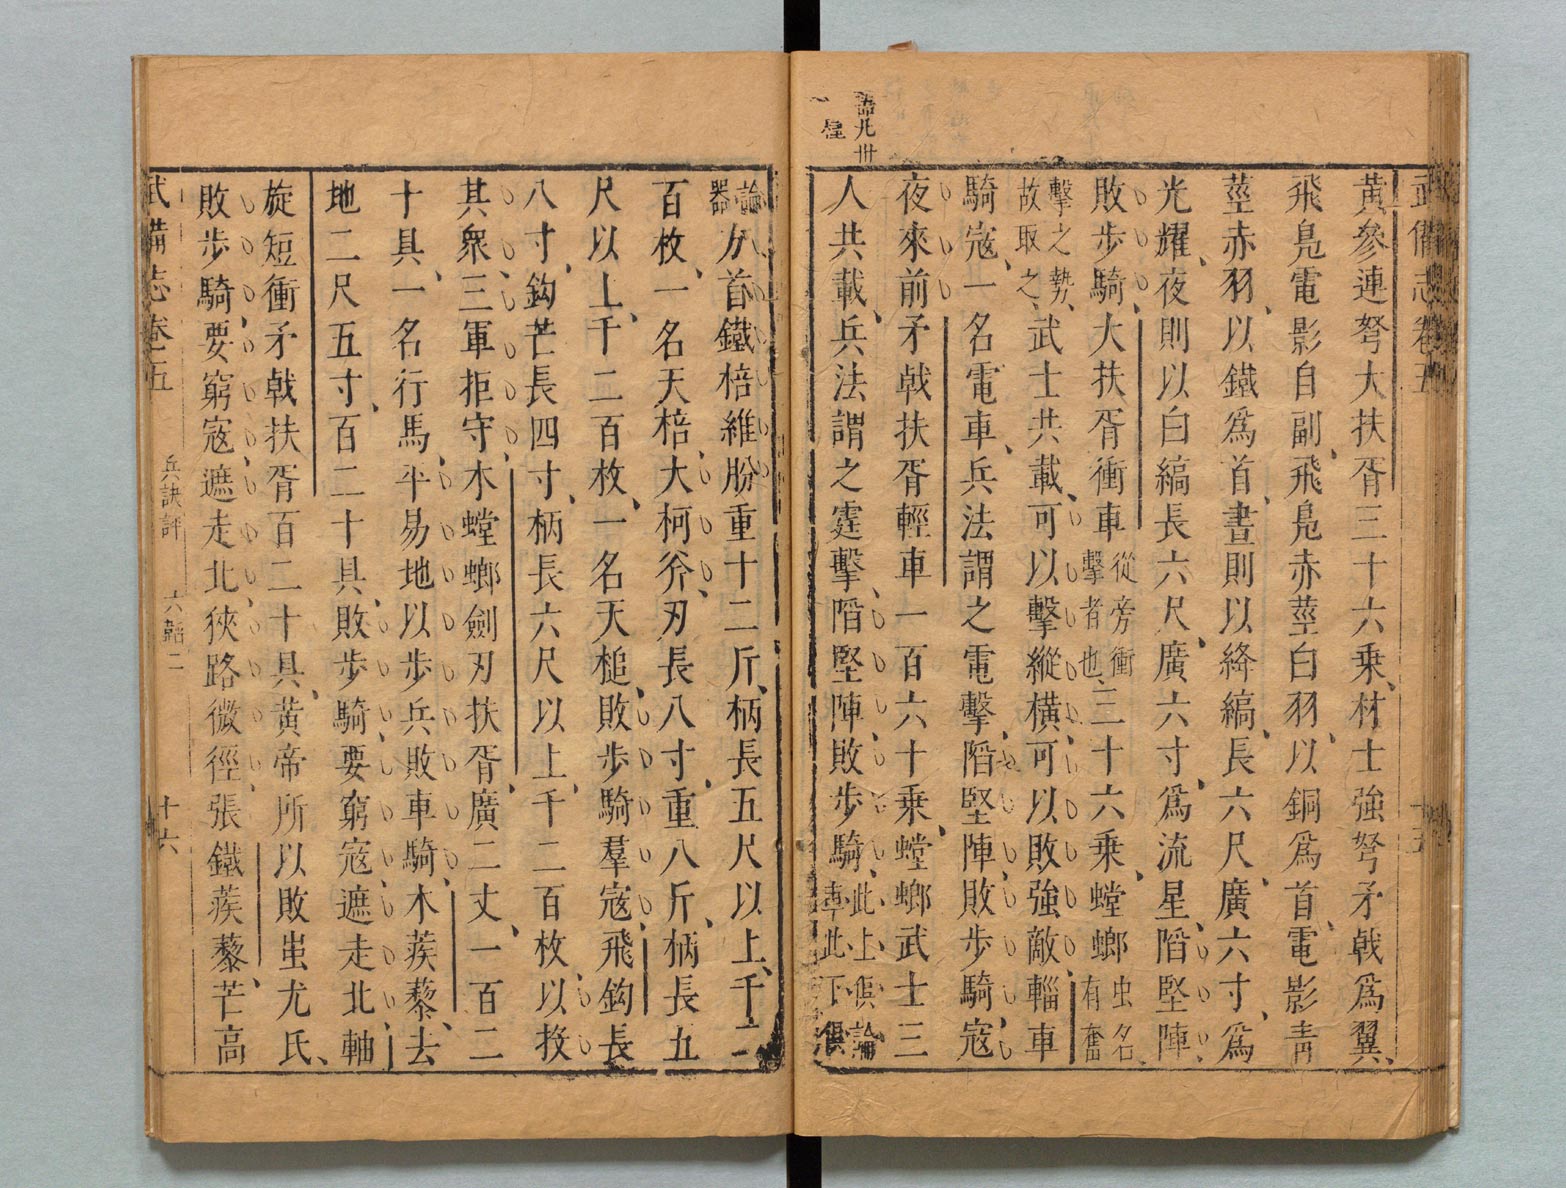 武備志卷五
黃參連弩大扶胥三十六乘材士強弩矛戟爲翼
飛鳧電影自副飛鳧赤莖白羽以銅爲首電影靑
莖赤羽以鐵爲首晝則以絳縞長六尺廣六寸爲
光耀夜則以白縞長六尺廣六寸爲流星陷堅陣
敗步騎大扶胥衝車從旁衝擊者也三十六乘螳螂虫名有奮
擊之勢故取之武士共載可以擊縱橫可以敗強敵輜車
騎寇一名電車兵法謂之電擊陷堅陣敗步騎寇
夜來前矛戟扶胥輕車一百六十乘螳螂武士三
人共載兵法謂之霆擊陷堅陣敗步騎此上俱論車此下俱
論器方首鐵棓維朌重十二斤柄長五尺以上千二
百枚一名天棓大柯斧刃長八寸重八斤柄長五
尺以上千二百枚一名天槌敗步騎羣寇飛鈎長
八寸鈎芒長四寸柄長六尺以上千二百枚以投
其衆三軍拒守木螳螂劍刃扶胥廣二丈一百二
十具一名行馬平易地以步兵敗車騎木蒺藜去
地二尺五寸百二十具敗步騎要窮寇遮走北軸
旋短衝矛戟扶胥百二十具黃帝所以敗蚩尤氏
敗步騎要窮寇遮走北狹路微徑張鐵蒺藜芒高
武備志卷五 兵訣評 六韜二 十六